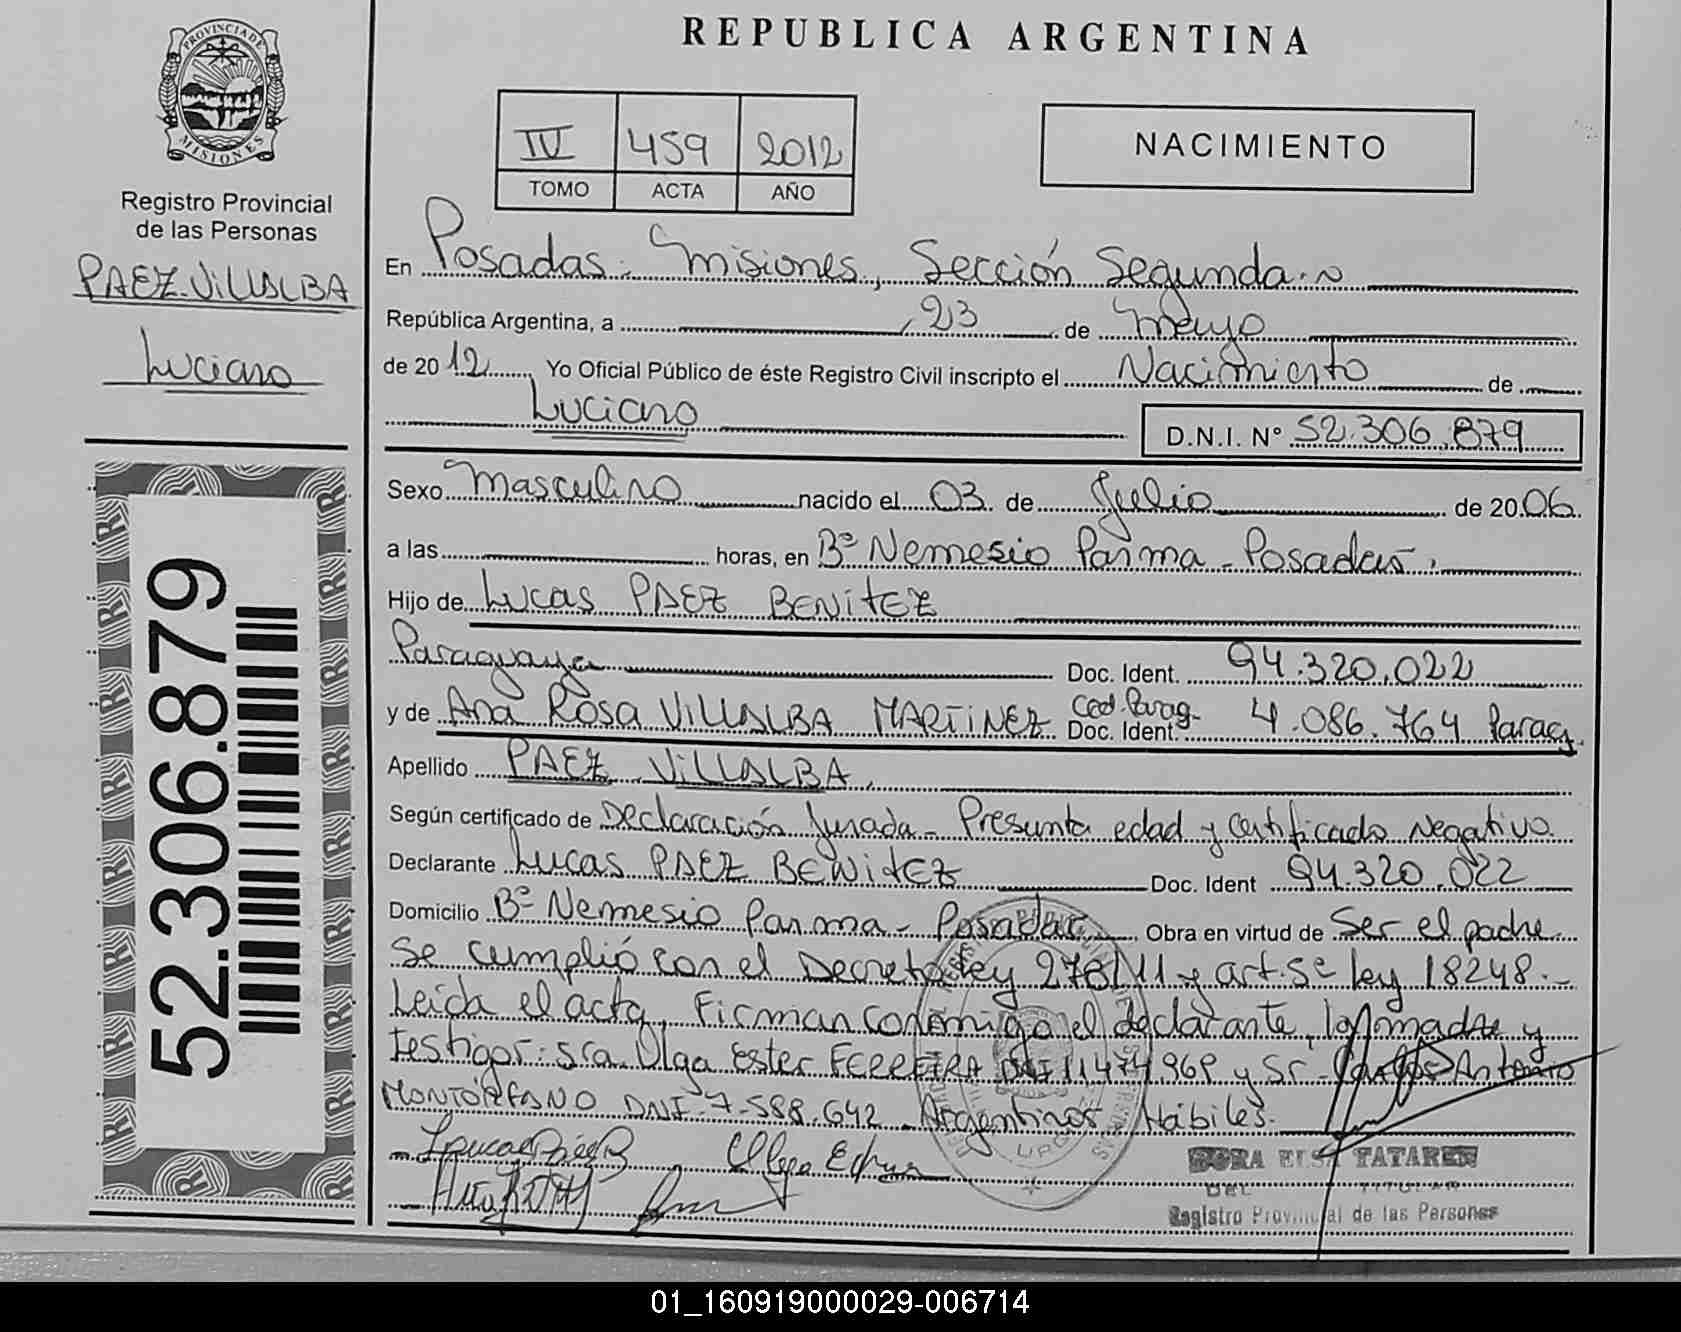 REPUBLICA ARGENTINA
PROVINCIA DE
MISIONES
Registro Provincial
de las Personas
PAEZ VILLALBA
Luciano
IV 459 2012
TOMO ACTA AÑO
NACIMIENTO
En Posadas, Misiones, Sección Segunda
República Argentina, a 23 de Mayo
de 2012 Yo Oficial Público de éste Registro Civil inscripto el Nacimiento de
Luciano D.N.I. Nº 52.306.879
Sexo Masculino nacido el 03 de Julio de 2006
a las horas, en Bº Nemesio Parma - Posadas.
Hijo de Lucas PAEZ BENITEZ
Paraguaya Doc. Ident. 94.320.022
y de Ana Rosa VILLALBA MARTINEZ Ced. Parag. Doc. Ident. 4.086.764 Parag.
Apellido PAEZ VILLALBA
Según certificado de Declaración Jurada - Presunta edad y certificado Negativo
Declarante Lucas PAEZ BENITEZ Doc. Ident 94.320.022
Domicilio Bº Nemesio Parma - Posadas Obra en virtud de Ser el padre
Se cumplió con el Decreto Ley 278/11 y art. 5º ley 18248.-
Leída el acta, Firman conmigo el declarante, la madre y
testigos: Sra. Olga Ester FERREIRA DNI 11474969 y Sr. Carlos Antonio
MONTÓRFANO DNI 7.588.642 Argentinos Hábiles.
DORA ELSA TATAREN
TITULAR
Registro Provincial de las Personas
52.306.879
01_160919000029-006714